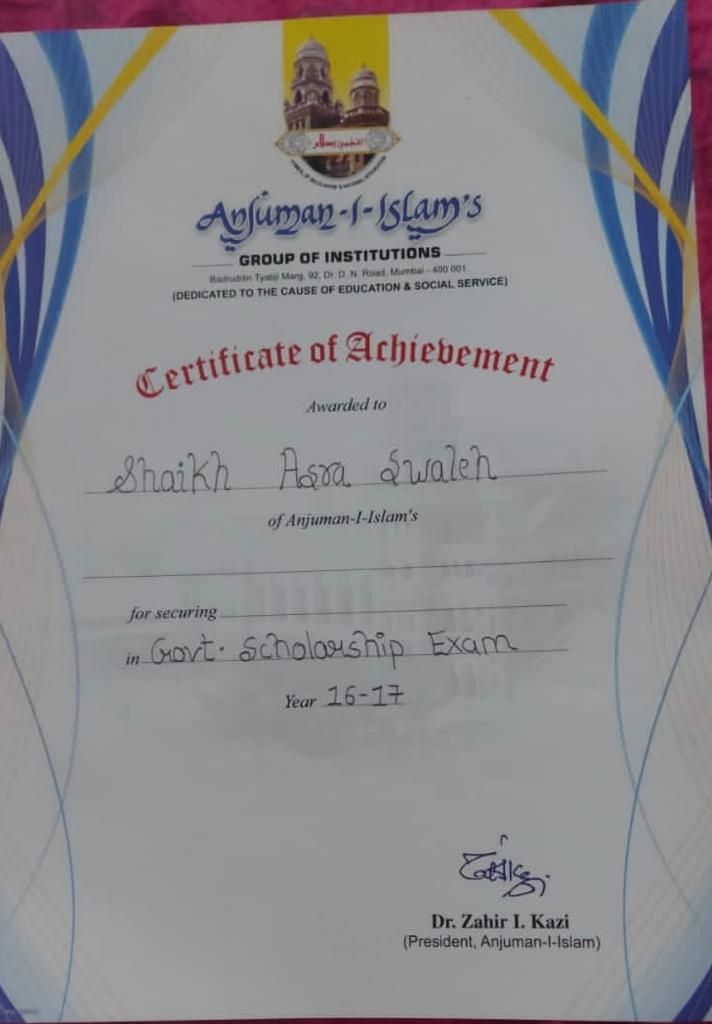 Anjuman-I-Islam's
GROUP OF INSTITUTIONS
Badruddin Tyabji Marg, 92, Dr. D. N. Road, Mumbai - 400 001.
(DEDICATED TO THE CAUSE OF EDUCATION & SOCIAL SERVICE)
Certificate of Achievement
Awarded to
Shaikh Asra Swaleh
of Anjuman-I-Islam's
for securing
in Govt. Scholarship Exam
Year 16-17
Dr. Zahir I. Kazi
(President, Anjuman-I-Islam)